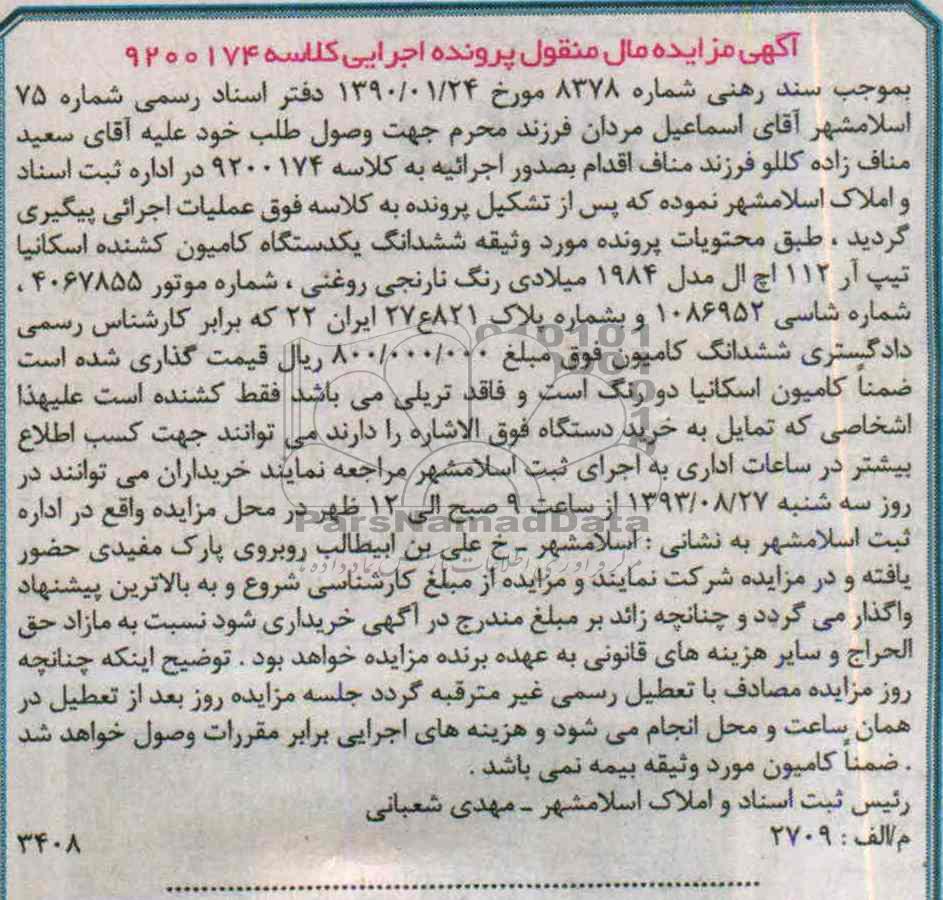 آگهی مزایده مال منقول پرونده اجرایی کلاسه ۹۲۰۰۱۷۴
بموجب سند رهنی شماره ۸۳۷۸ مورخ ۱۳۹۰/۰۱/۲۴ دفتر اسناد رسمی شماره ۷۵
اسلامشهر آقای اسماعیل مردان فرزند محرم جهت وصول طلب خود علیه آقای سعید
مناف زاده کللو فرزند مناف اقدام بصدور اجرائیه به کلاسه ۹۲۰۰۱۷۴ در اداره ثبت اسناد
و املاک اسلامشهر نموده که پس از تشکیل پرونده به کلاسه فوق عملیات اجرائی پیگیری
گردید ، طبق محتویات پرونده مورد وثیقه ششدانگ یکدستگاه کامیون کشنده اسکانیا
تیپ آر ۱۱۲ اچ ال مدل ۱۹۸۴ میلادی رنگ نارنجی روغنی ، شماره موتور ۴۰۶۷۸۵۵ ،
شماره شاسی ۱۰۸۶۹۵۲ و بشماره پلاک ۸۲۱ع۲۷ ایران ۲۲ که برابر کارشناس رسمی
دادگستری ششدانگ کامیون فوق مبلغ ۸۰۰/۰۰۰/۰۰۰ ریال قیمت گذاری شده است
ضمناً کامیون اسکانیا دو رنگ است و فاقد تریلی می باشد فقط کشنده است علیهذا
اشخاصی که تمایل به خرید دستگاه فوق الاشاره را دارند می توانند جهت کسب اطلاع
بیشتر در ساعات اداری به اجرای ثبت اسلامشهر مراجعه نمایند خریداران می توانند در
روز سه شنبه ۱۳۹۳/۰۸/۲۷ از ساعت ۹ صبح الی ۱۲ ظهر در محل مزایده واقع در اداره
ParsNamadData
ثبت اسلامشهر به نشانی : اسلامشهر ـ خ علی بن ابیطالب روبروی پارک مفیدی حضور
یافته و در مزایده شرکت نمایند و مزایده از مبلغ کارشناسی شروع و به بالاترین پیشنهاد
واگذار می گردد و چنانچه زائد بر مبلغ مندرج در آگهی خریداری شود نسبت به مازاد حق
الحراج و سایر هزینه های قانونی به عهده برنده مزایده خواهد بود . توضیح اینکه چنانچه
روز مزایده مصادف با تعطیل رسمی غیر مترقبه گردد جلسه مزایده روز بعد از تعطیل در
همان ساعت و محل انجام می شود و هزینه های اجرایی برابر مقررات وصول خواهد شد
. ضمناً کامیون مورد وثیقه بیمه نمی باشد .
رئیس ثبت اسناد و املاک اسلامشهر ـ مهدی شعبانی
م/الف : ۲۷۰۹ ۳۴۰۸